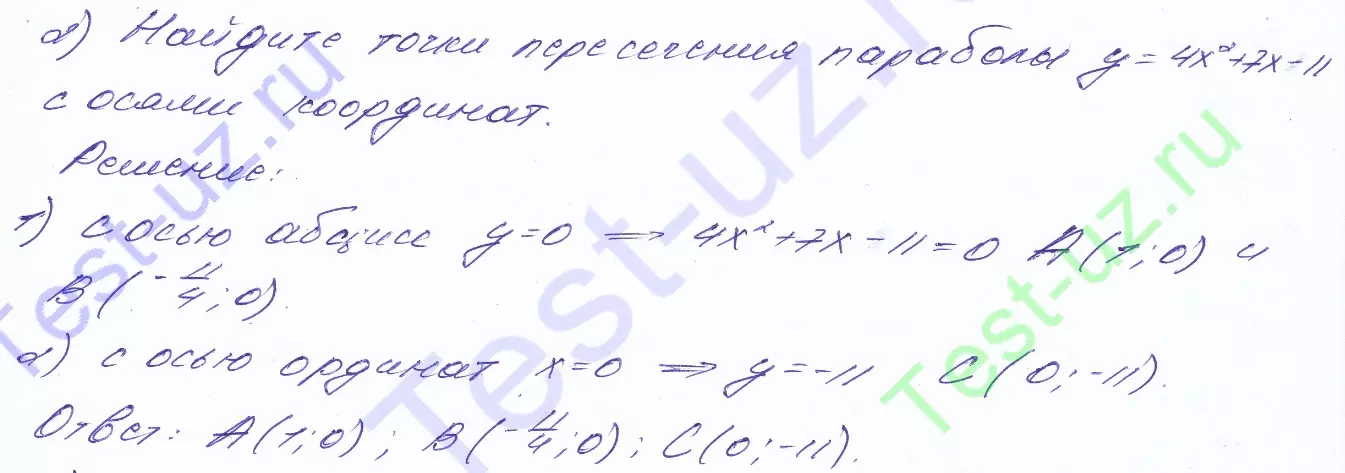 2) Найдите точки пересечения параболы y=4x²+7x-11
с осями координат.
Решение:
1) с осью абцисс y=0 ⇒ 4x²+7x-11=0 A(1;0) и
B(-11/4;0).
2) с осью ординат x=0 ⇒ y=-11 C(0;-11).
Ответ: A(1;0); B(-11/4;0); C(0;-11).
Test-uz.ru
Test-uz.ru
Test-uz.ru